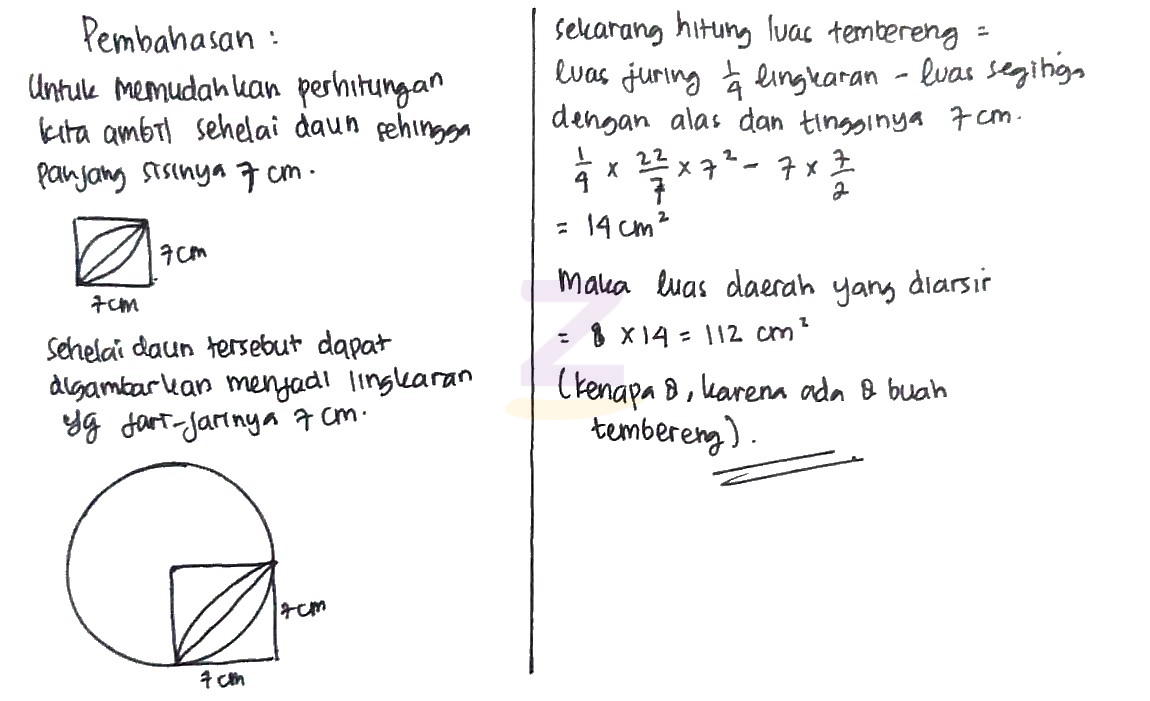 Pembahasan :
Untuk memudahkan perhitungan
kita ambil sehelai daun sehingga
panjang sisinya 7 cm.
7cm
7cm
Sehelai daun tersebut dapat
digambarkan menjadi lingkaran
yg jari-jarinya 7 cm.
7cm
7cm
Sekarang hitung luas tembereng =
luas juring 1/4 lingkaran - luas segitiga
dengan alas dan tingginya 7 cm.
1/4 x 22/7 x 7² - 7 x 7/2
= 14 cm²
Maka luas daerah yang diarsir
= 8 x 14 = 112 cm²
(kenapa 8, karena ada 8 buah
tembereng).
Z